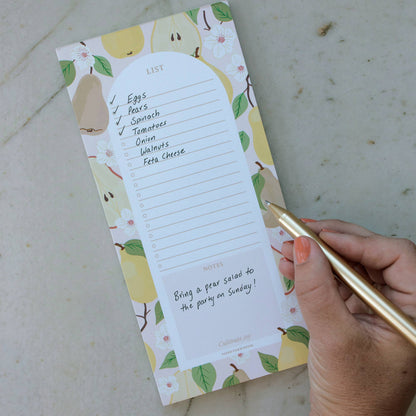 LIST
✓ Eggs
✓ Pears
✓ Spinach
✓ Tomatoes
Onion
Walnuts
Feta Cheese
NOTES
Bring a pear salad to
the party on Sunday!
Cultivate joy